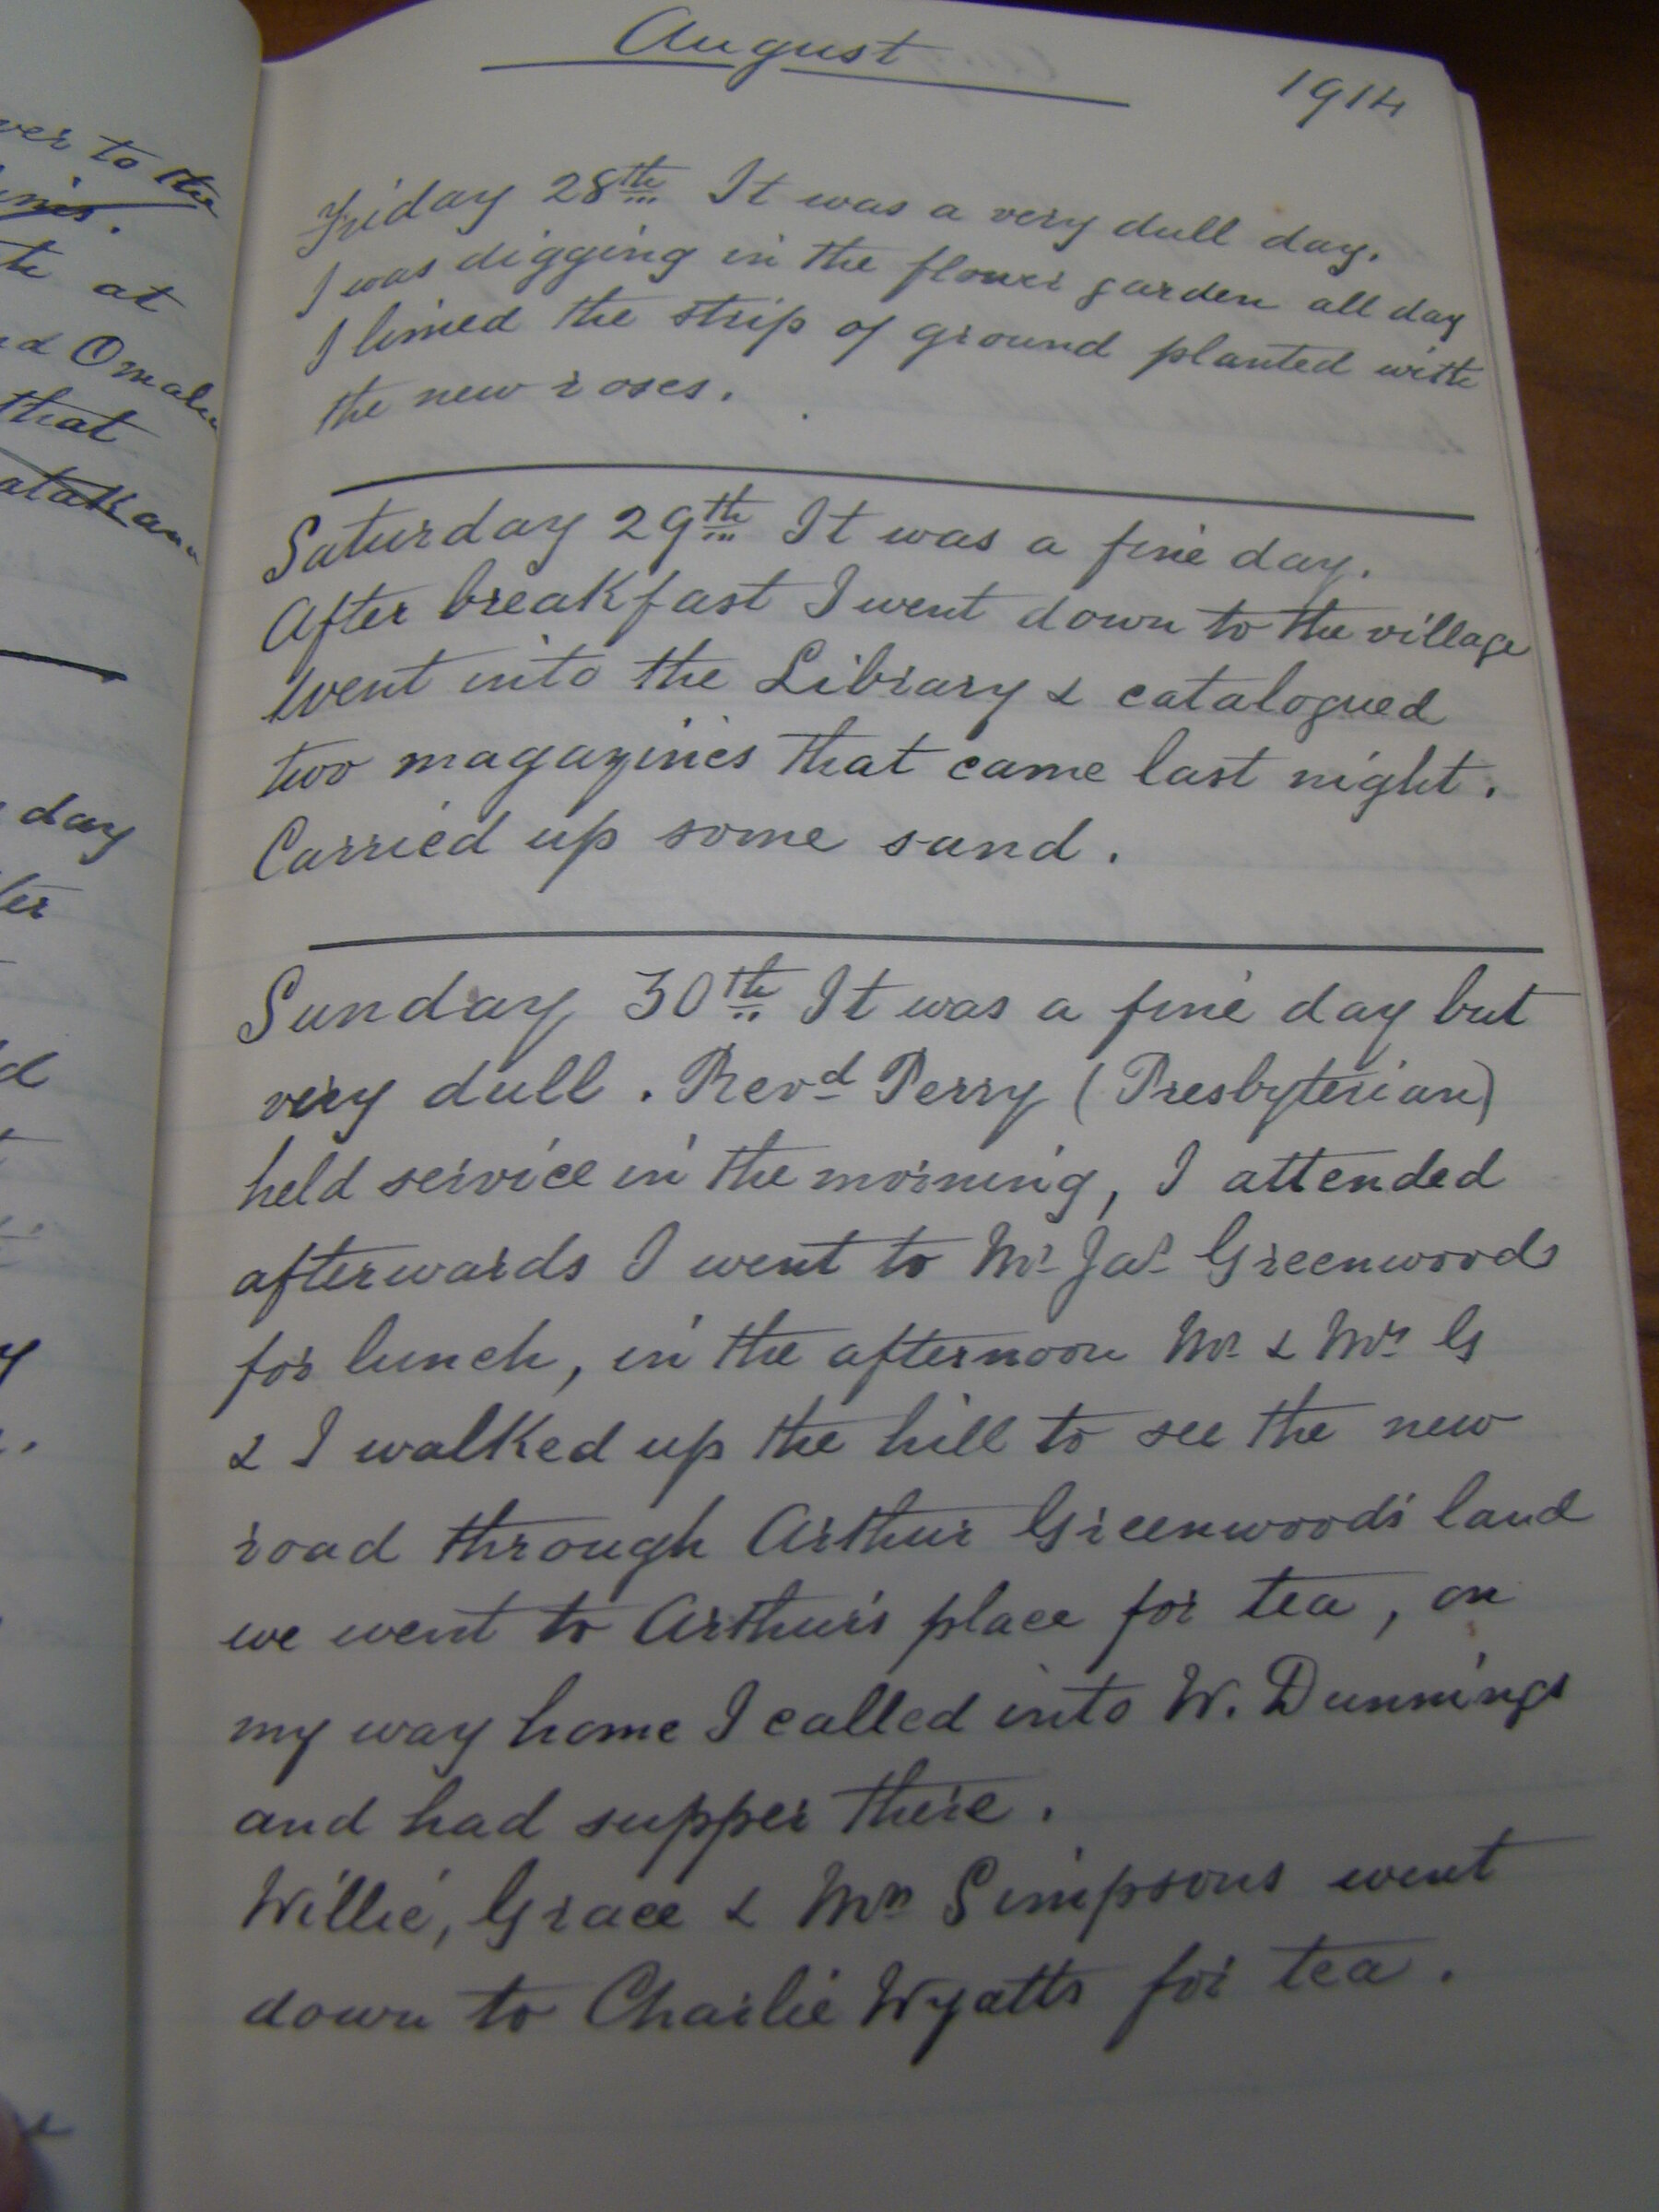 ver to the
at
nd Omaha
that
day
August
1914
Friday 28th It was a very dull day.
I was digging in the flower garden all day
I limed the strip of ground planted with
the new roses.
Saturday 29th It was a fine day.
After breakfast I went down to the village
went into the Library & catalogued
two magazines that came last night.
Carried up some sand.
Sunday 30th It was a fine day but
very dull. Revd Perry (Presbyterian)
held service in the morning, I attended
afterwards I went to Mr Jas Greenwoods
for lunch, in the afternoon Mr & Mrs G
& I walked up the hill to see the new
road through Arthur Greenwoods land
we went to Arthur's place for tea, on
my way home I called into W. Dunnings
and had supper there.
Willie, Grace & Mrs Simpsons went
down to Charlie Wyatts for tea.